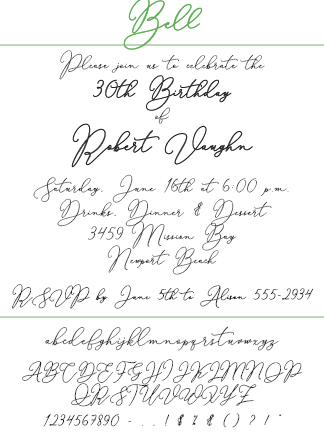 Bell
Please join us to celebrate the
30th Birthday
of
Robert Vaughn
Saturday, June 16th at 6:00 p.m.
Drinks, Dinner & Dessert
3459 Mission Bay
Newport Beach
RSVP by June 5th to Alison 555-2934
abcdefghijklmnopqrstuvwxyz
ABCDEFGHIJKLMNOP
QRSTUVWXYZ
1234567890 - , . ! $ & ( ) ? !